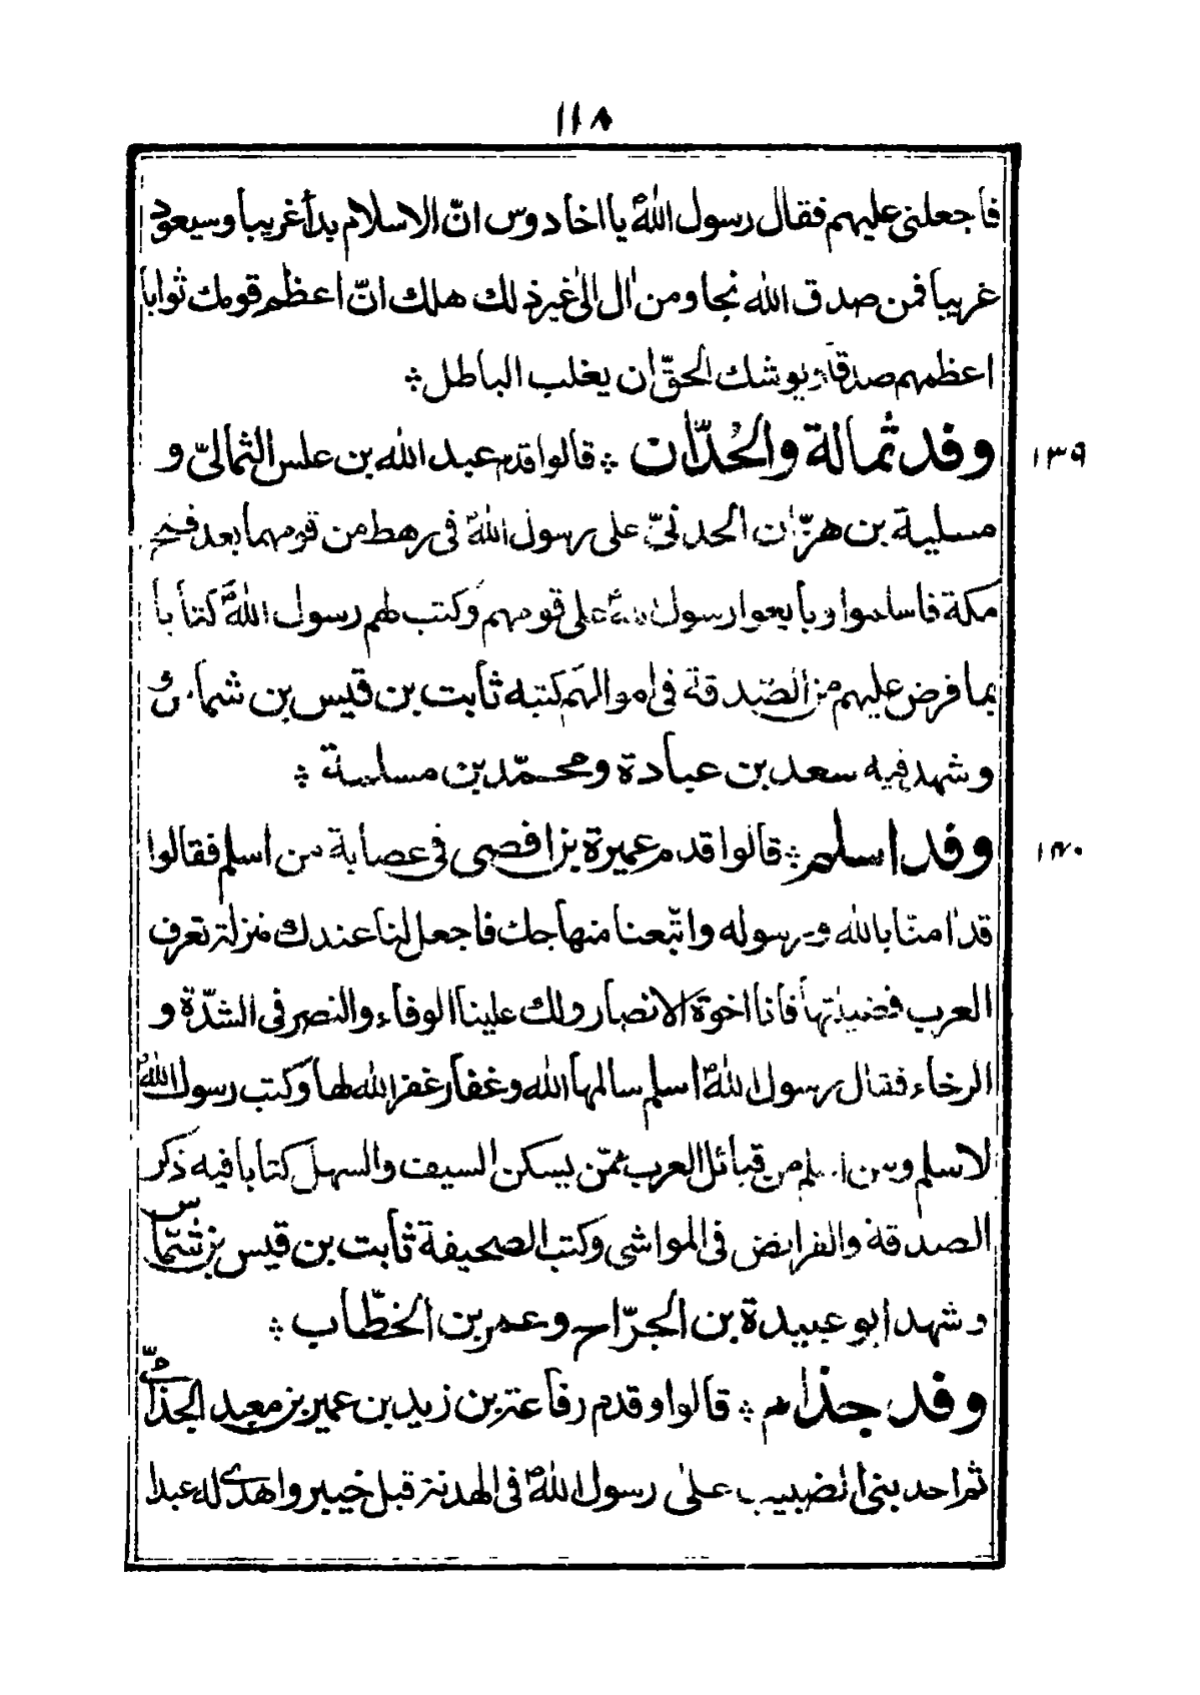 ١١٨
فاجعلنى عليهم فقال رسول اللهؐ يا اخا دوس انّ الاسلام بدأ غريبا وسيعود
غريبا فمن صدق الله نجا ومن اٰل الىٰ غير ذلك هلك انّ اعظم قومك ثوابا
اعظمهم صدقا ويوشك الحقّ ان يغلب الباطل ؞
١٣٩
وفد ثمالة والحُدّان ؞ قالوا قدم عبد الله بن علس الثمالىّ و
مسلية بن هزّان الحدنىّ على رسول اللهؐ فى رهط من قومهما بعد فتح
مكة فاسلموا وبايعوا رسول اللهؐ على قومهم وكتب لهم رسول اللهؐ كتابا
بما فرض عليهم من الصّدقة فى اموالهم كتبه ثابت بن قيس بن شماس
وشهد فيه سعد بن عبادة ومحمّد بن مسلمة ؞
١٤٠
وفد اسلم ؞ قالوا قدم عميرة بن افصى فى عصابة من اسلم فقالوا
قد اٰمنّا بالله ورسوله واتّبعنا منهاجك فاجعل لنا عندك منزلة تعرف
العرب فضيلتها فانا اخوة الانصار ولك علينا الوفاء والنصر فى الشدّة و
الرخاء فقال رسول اللهؐ اسلم سالمها الله وغفار غفر الله لها وكتب رسول اللهؐ
لاسلم ومن اسلم من قبائل العرب ممّن يسكن السيف والسهل كتابا فيه ذكر
الصدقة والفرائض فى المواشى وكتب الصحيفة ثابت بن قيس بن شمّاس
وشهد ابو عبيدة بن الجرّاح وعمر بن الخطّاب ؞
وفد جذام ؞ قالوا وقدم رفاعة بن زيد بن عمير بن معبد الجذامىّ
ثم احد بنى الضبيب علىٰ رسول اللهؐ فى الهدنة قبل خيبر واهدى له عبدا